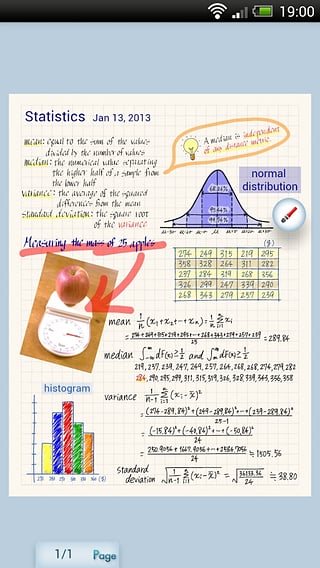 19:00
Statistics Jan 13, 2013
mean: equal to the sum of the values
divided by the number of values
median: the numerical value separating
the higher half of a sample from
the lower half
variance: the average of the squared
differences from the mean
standard deviation: the square root
of the variance
A median is independent
of any distance metric.
normal
distribution
68.26%
95.44%
99.74%
Measuring the mass of 25 apples
(g)
274 249 315 219 295
358 328 264 311 282
237 284 319 268 356
326 299 247 339 290
268 343 279 257 239
mean 1/n (x₁+x₂+⋯+xₙ) = 1/n Σxᵢ
= 274+249+315+219+295+⋯+268+343+279+257+239 / 25 = 289.84
median ∫dF(x) ≥ 1/2 and ∫dF(x) ≥ 1/2
219, 237, 239, 247, 249, 257, 264, 268, 268, 274, 279, 282
284, 290, 295, 299, 311, 315, 319, 326, 328, 339, 343, 356, 358
histogram
variance 1/n-1 Σ(xᵢ-x̄)²
= (274-289.84)²+(249-289.84)²+⋯+(239-289.84)² / 25-1
= (-15.84)²+(-40.84)²+⋯+(-50.84)² / 24
= 250.9056+1667.9056+⋯+2584.7056 / 24 ≒ 1505.56
standard
deviation √1/n-1 Σ(xᵢ-x̄)² = √36133.36/24 ≒ 38.80
1/1 Page